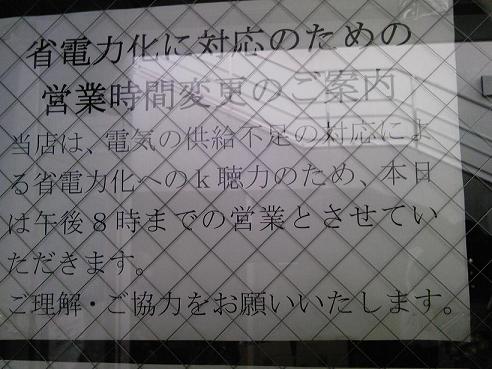 省電力化に対応のための
営業時間変更のご案内
当店は、電気の供給不足の対応によ
る省電力化へのｋ聴力のため、本日
は午後８時までの営業とさせてい
ただきます。
ご理解・ご協力をお願いいたします。